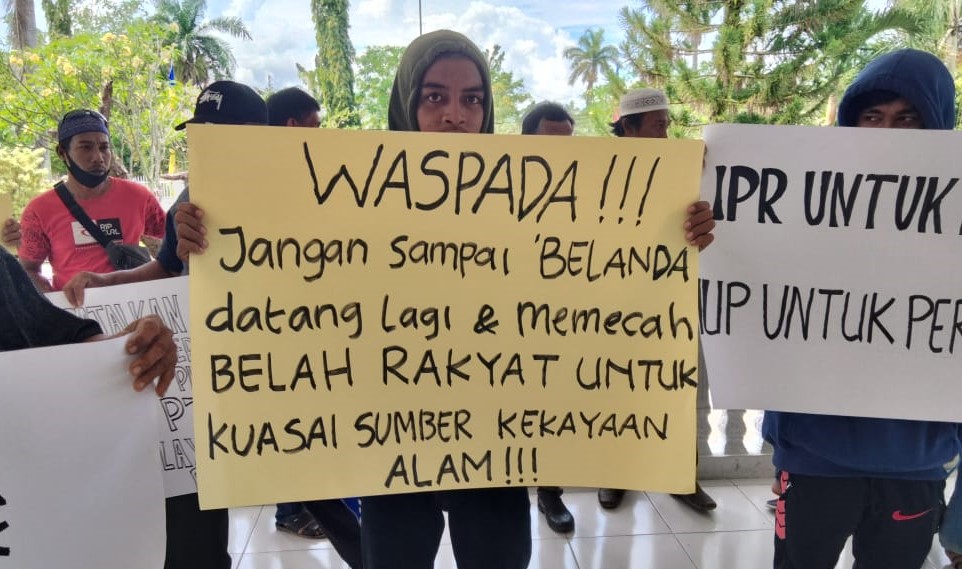 WASPADA!!!
Jangan sampai 'BELANDA
datang lagi & memecah
BELAH RAKYAT UNTUK
KUASAI SUMBER KEKAYAAN
ALAM!!!
IPR UNTUK
UNTUK PER